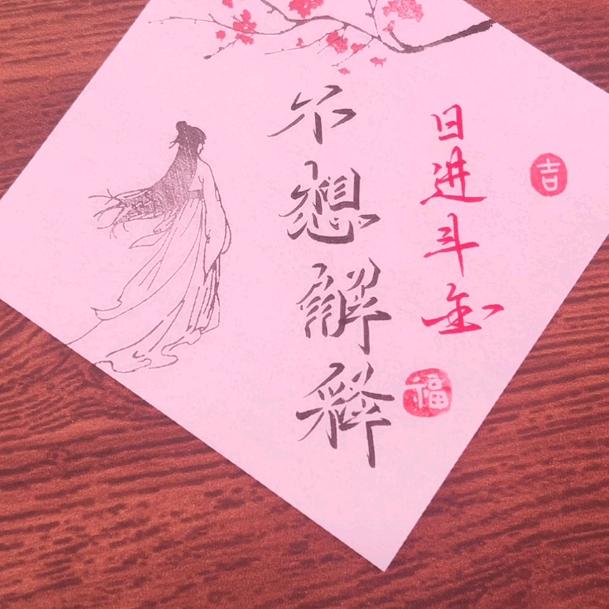 日进斗金
不想解释
吉
福